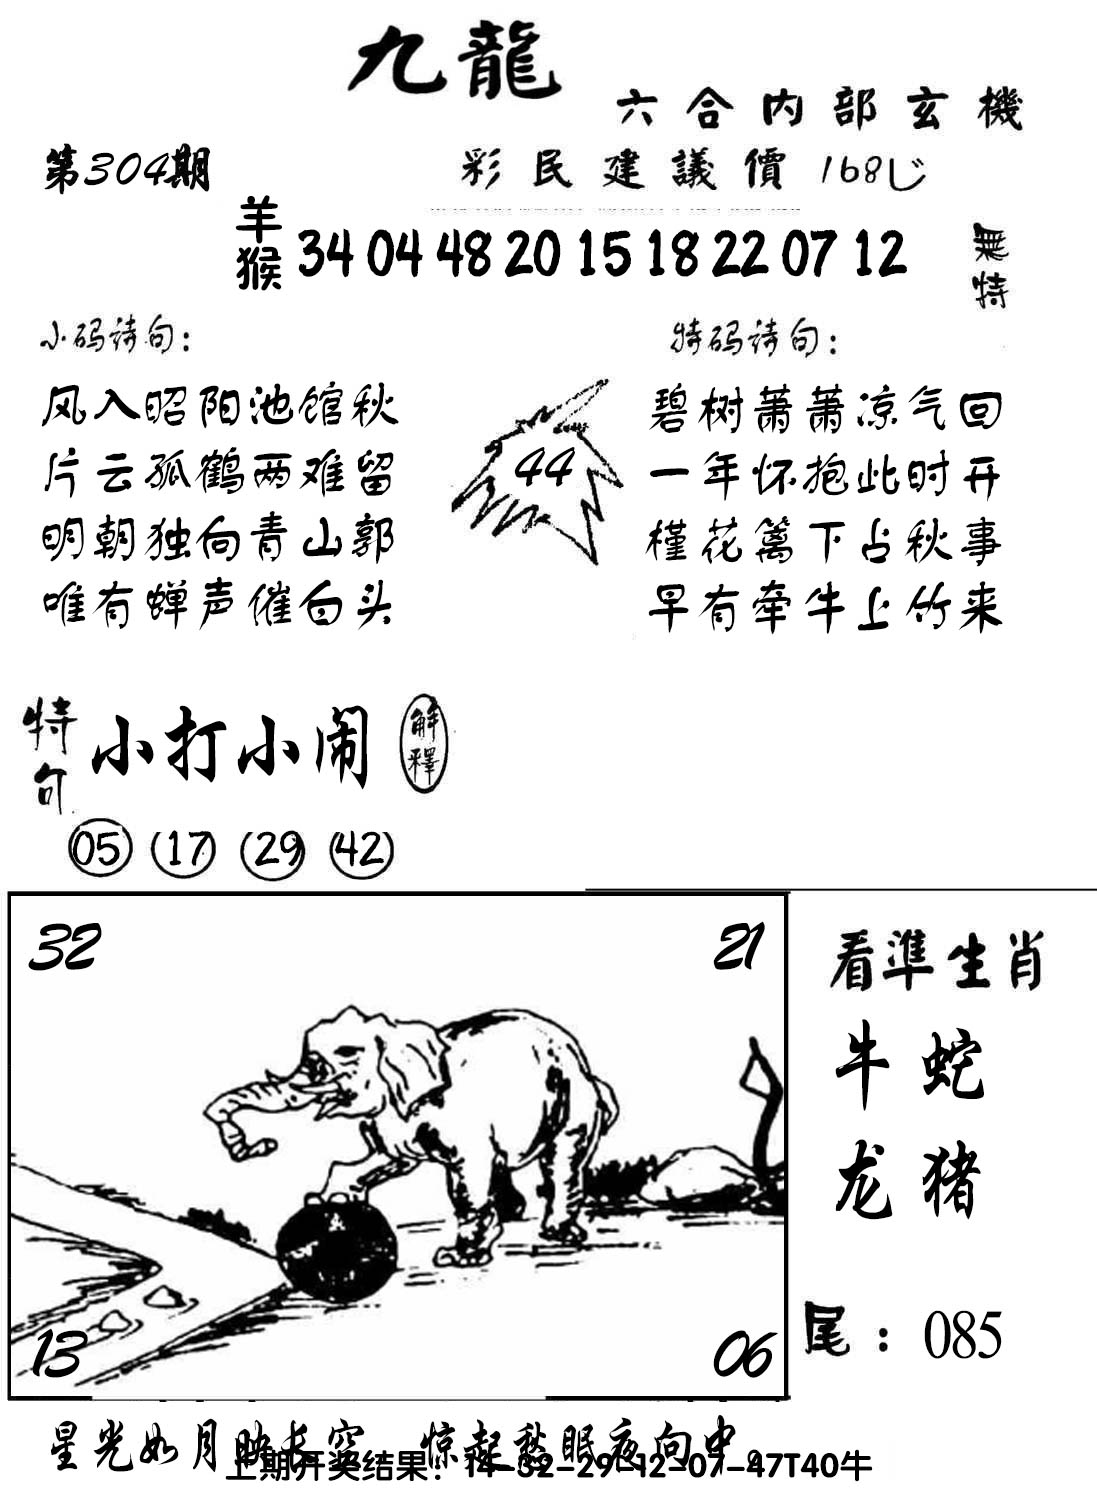 九龍
六合内部玄機
第304期
彩民建議價 168
羊猴 34 04 48 20 15 18 22 07 12
無特
小码诗句：
风入昭阳池馆秋
片云孤鹤两难留
明朝独向青山郭
唯有蝉声催白头
44
特码诗句：
碧树萧萧凉气回
一年怀抱此时开
槿花篱下占秋事
早有牵牛上竹来
特句 小打小闹 解釋
05 17 29 42
32 21
13 06
看準生肖
牛 蛇
龙 猪
尾：085
星光如月映长空 惊起愁眠夜向中。
上期开奖结果：14-32-29-12-07-47T40牛